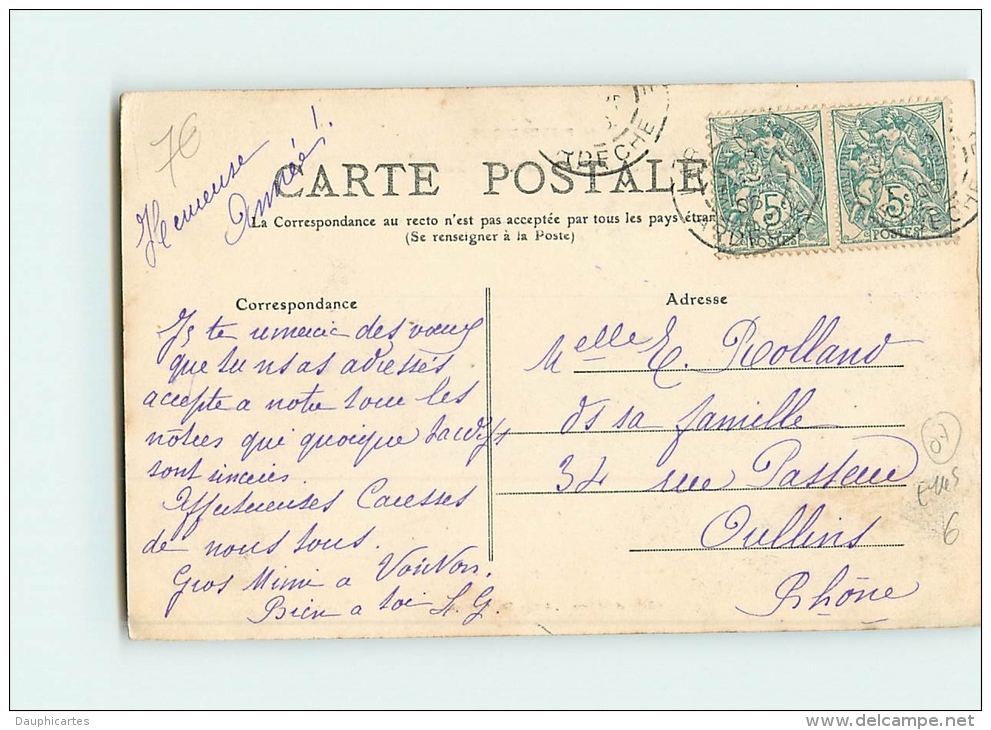 76
Heureuse
Année!
CARTE POSTALE
La Correspondance au recto n'est pas acceptée par tous les pays étran
(Se renseigner à la Poste)
ARDÈCHE
5c
POSTES
5c
POSTES
Correspondance
Je te remercie des vœux
que tu ns as adressés
accepte a notre tour les
nôtres qui quoique tardifs
sont sincères.
Affectueuses Caresses
de nous tous.
Gros Mimi a VonVon.
Bien a toi
Adresse
Melle E. Rolland
ds sa famille
34 rue Pasteur
Oullins
Rhône
07
6
Dauphicartes
http://www.delcampe.net